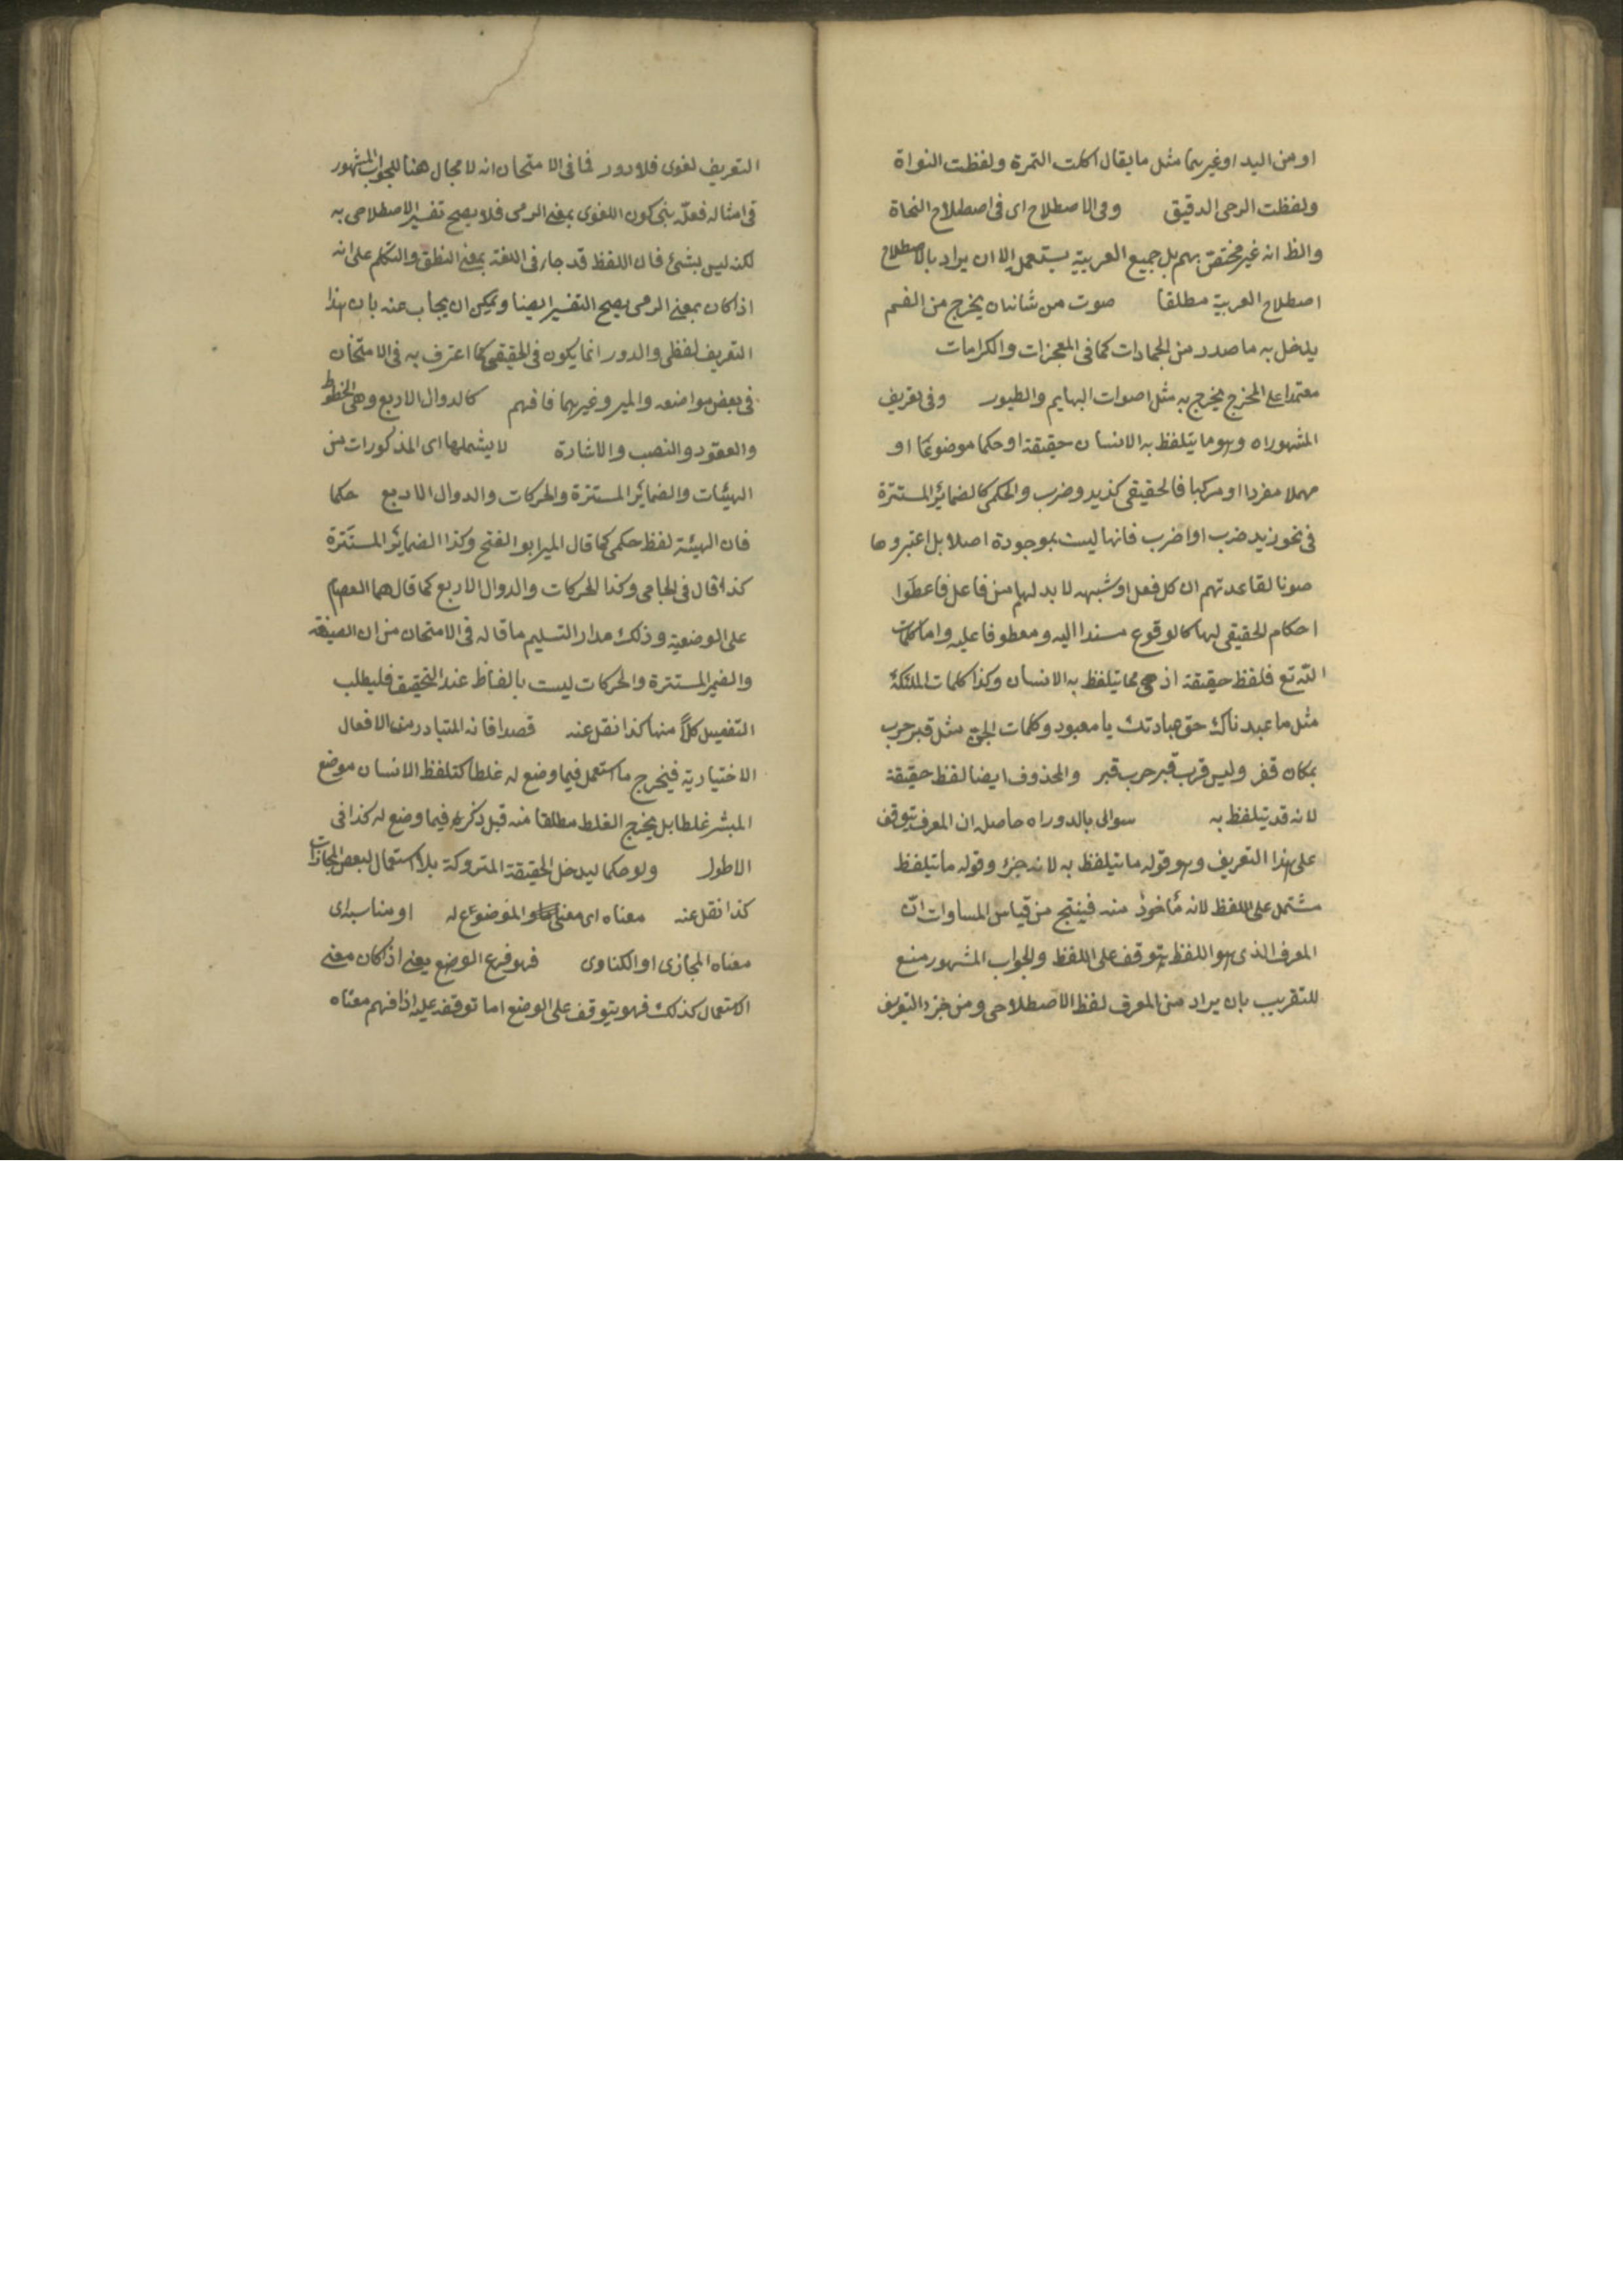 او من اليد او غيرهما مثل ما يقال اكلت التمرة ولفظت النواة
ولفظت الرحى الدقيق وفى الاصطلاح اى فى اصطلاح النحاة
والظ انه غير مختص بهم بل جميع العربية يستعمل الا ان يراد بالاصطلاح
اصطلاح العربية مطلقا صوت من شانه ان يخرج من الفم
يدخل به ما صدر من الجمادات كما فى المعجزات والكرامات
معتمدا على المخرج يخرج به مثل اصوات البهايم والطيور وفى تعريف
المشهور اه وهو ما يتلفظ به الانسان حقيقة او حكما موضوعا او
مهملا مفردا او مركبا فالحقيقى كزيد وضرب والحكمى كالضمائر المستترة
فى نحو زيد ضرب او اضرب فانها ليست بموجودة اصلا بل اعتبروها
صونا لقاعدتهم ان كل فعل او شبهه لا بد لهم من فاعل فاعطوا
احكام الحقيقى لها كالوقوع مسندا اليه ومعطوفا عليه واما كلمات
الله تع فلفظ حقيقة اذ هى مما يتلفظ به الانسان وكذا كلمات الملئكة
مثل ما عبدناك حق عبادتك يا معبود وكلمات الجن مثل قبر حرب
بمكان قفر وليس قرب قبر حرب قبر والمحذوف ايضا لفظ حقيقة
لانه قد يتلفظ به سوالى بالدور اه حاصله ان المعرف يتوقف
على هذا التعريف وهو قوله ما يتلفظ به لانه جزؤ وقوله ما يتلفظ
مشتمل على اللفظ لانه مأخوذ منه فينتج من قياس المساوات ان
المعرف الذى هو اللفظ يتوقف على اللفظ والجواب المشهور منع
للتقريب بان يراد من المعرف لفظ الاصطلاحى ومن جزء التعريف
التعريف لغوى فلا دور فما فى الامتحان انه لا مجال هنا للجواب المشهور
فى امثاله فعله بنى كون اللغوى بمعنى الرمى فلا يصح تفسير الاصطلاحى به
لكنه ليس بشئ فان اللفظ قد جاء فى اللغة بمعنى النطق والتكلم على انه
اذا كان بمعنى الرمى يصح التفسير ايضا ويمكن ان يجاب عنه بان هذا
التعريف لفظى والدور انما يكون فى الحقيقى كما اعترف به فى الامتحان
فى بعض مواضعه والمير وغيرهما فافهم كالدوال الاربع وهى الخطوط
والعقود والنصب والاشارة لا يشملها اى المذكورات من
الهيئات والضمائر المستترة والحركات والدوال الاربع حكما
فان الهيئة لفظ حكمى كما قال المير ابو الفتح وكذا الضمائر المستترة
كذا قال فى الجامى وكذا الحركات والدوال الاربع كما قالهما العصام
على الوضعية وذلك مدار التسليم ما قاله فى الامتحان من ان الصيغة
والضمير المستترة والحركات ليست بالفاظ عند التحقيق فليطلب
التفصيل كلاً منها كذا نقل عنه قصدا فانه المتبادر من الافعال
الاختيارية فيخرج ما استعمل فيما وضع له غلطا كتلفظ الانسان موضع
المبشر غلطا بل يخرج الغلط مطلقا منه قبل ذكره فيما وضع له كذا فى
الاطول ولو حكما ليدخل الحقيقة المتروكة بلا استعمال لبعض المجازات
كذا نقل عنه معناه اى معنى الموضوع له او مناسبه اى
معناه المجازى او الكناوى فهو فرع الوضع يعنى اذ كان معنى
الاستعمال كذلك فهو يتوقف على الوضع اما توقفه عليه اذا فهم معناه